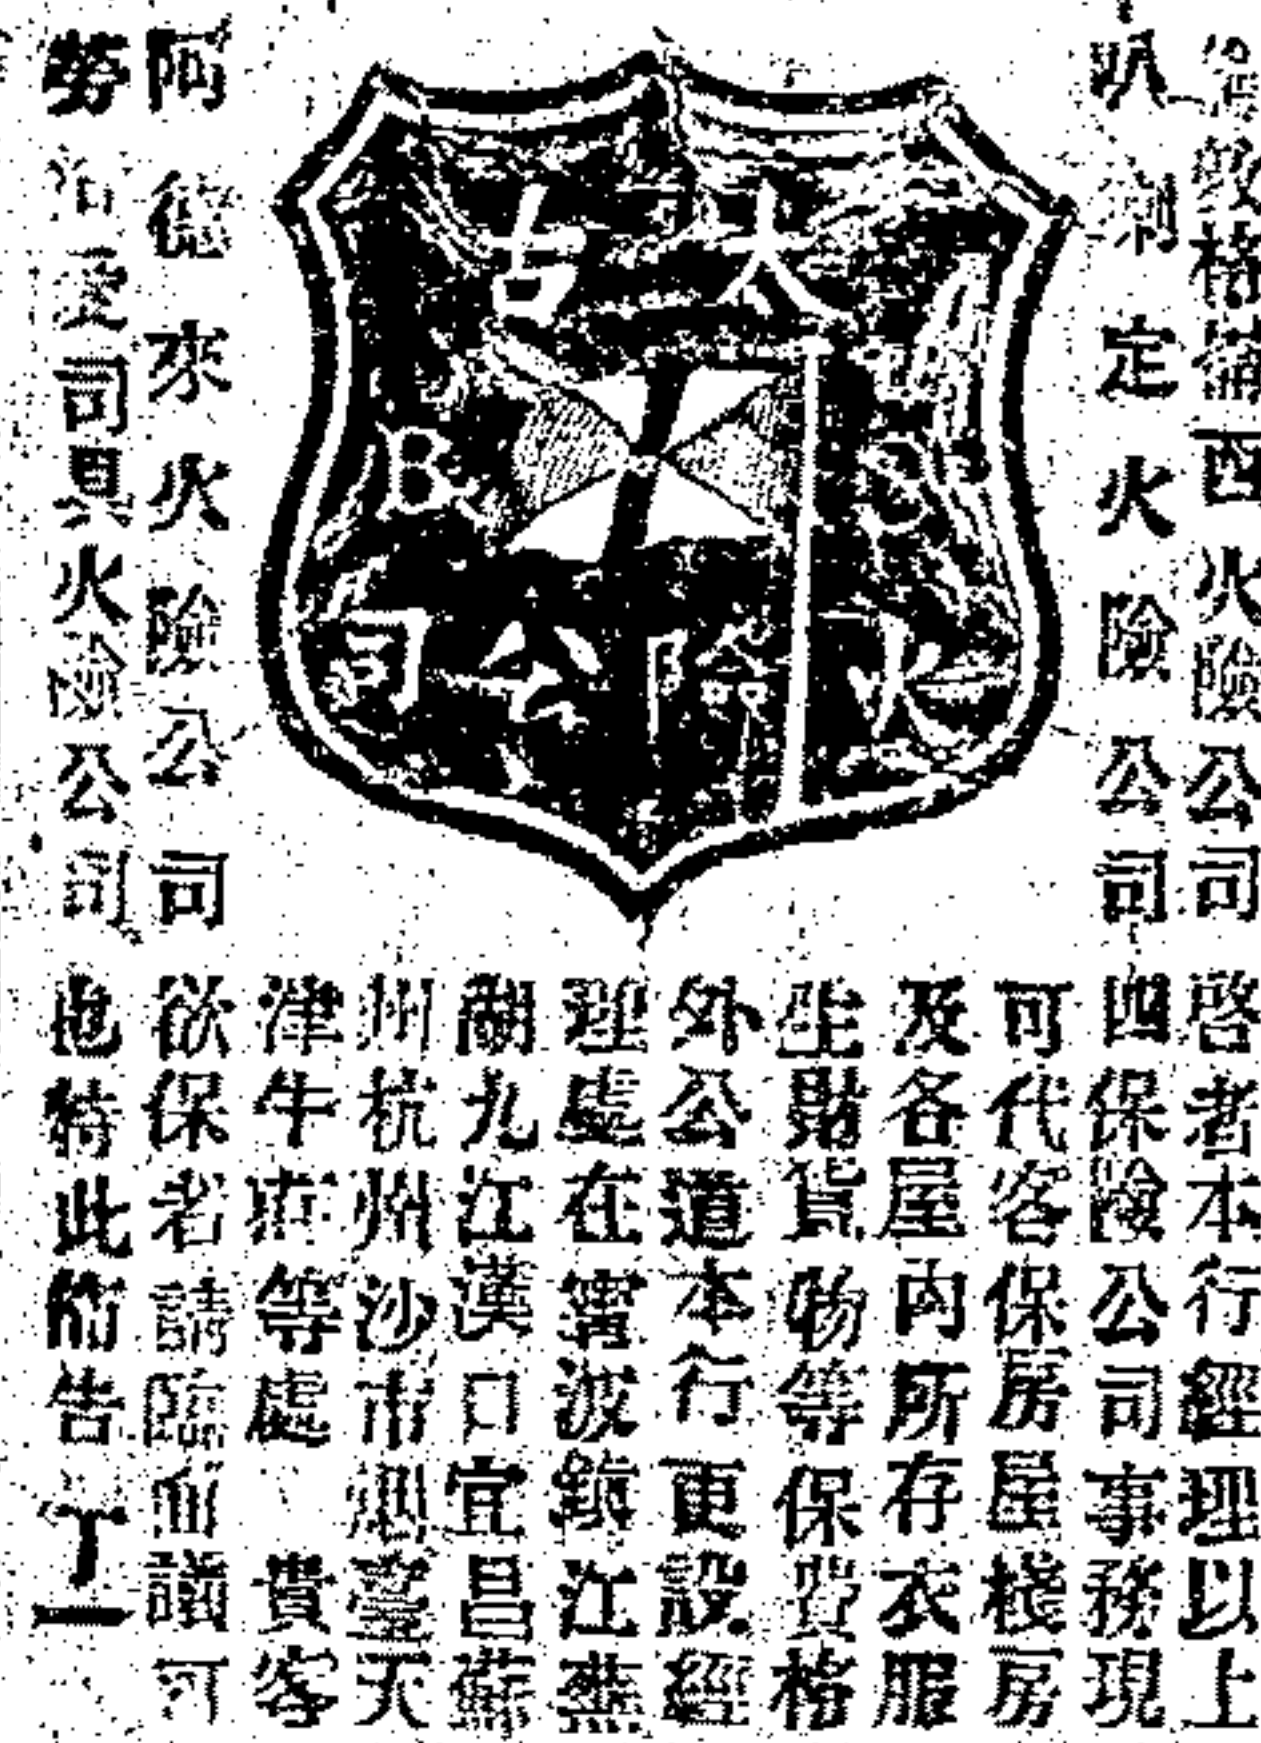 敦格埔西火險公司
叭剌定火險公司
太古
火險公司
B S
阿德來火險公司
勞司具火險公司
啓者本行經理以上
四保險公司事務現
可代客保房屋棧房
及各屋內所存衣服
生財貨物等保費格
外公道本行更設經
理處在甯波鎮江蕪
湖九江漢口宜昌蘇
州杭州沙市烟臺天
津牛庄等處 貴客
欲保者請臨面議可
也特此佈告 丁一